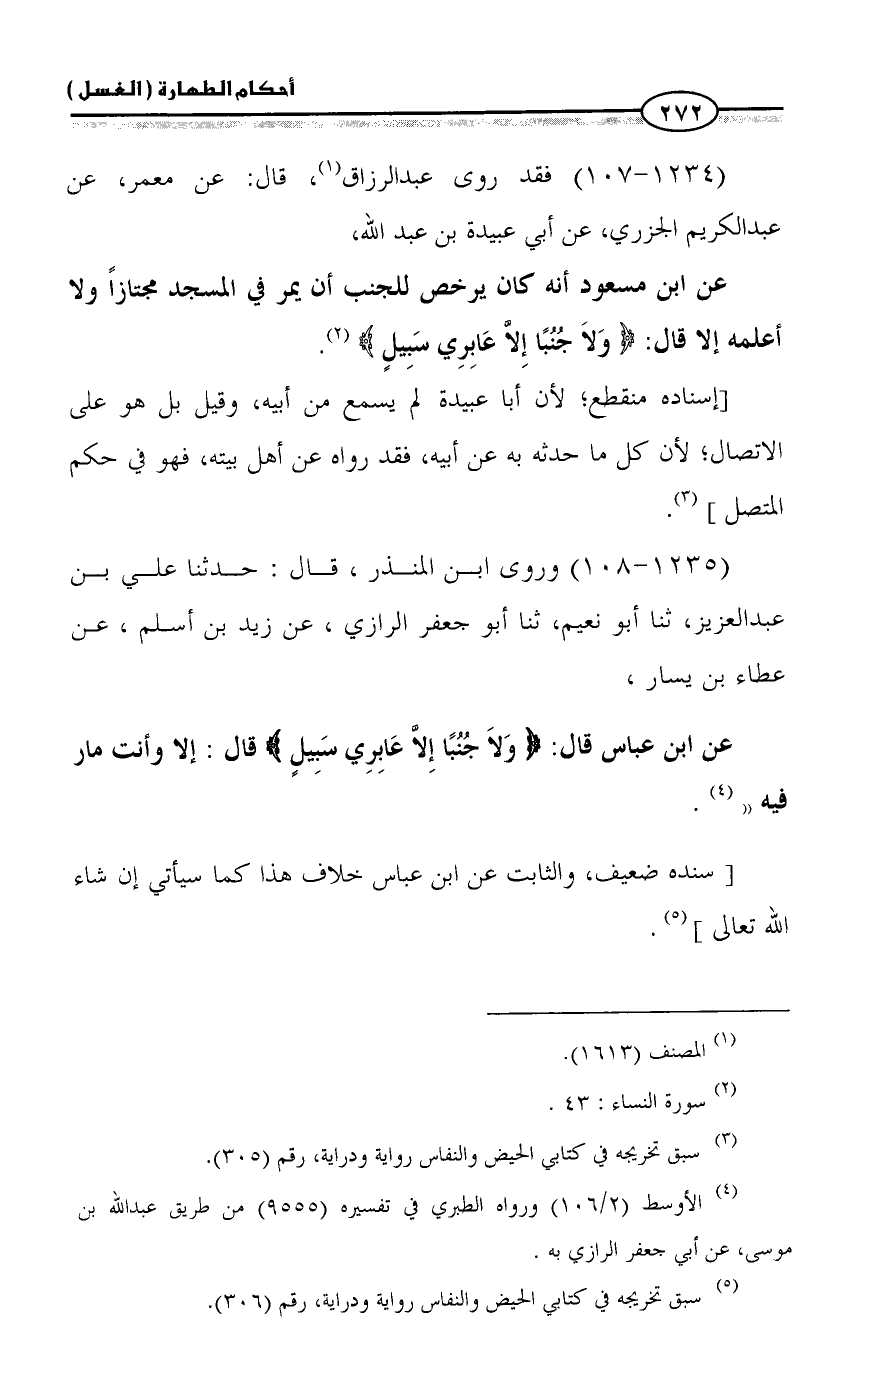 أحكام الطهارة ( الغسل )
٢٧٢
(١٢٣٤-١٠٧) فقد روى عبدالرزاق(١)، قال: عن معمر، عن
عبدالكريم الجزري، عن أبي عبيدة بن عبد الله،
عن ابن مسعود أنه كان يرخص للجنب أن يمر في المسجد مجتازاً ولا
أعلمه إلا قال: ﴿ وَلاَ جُنُبًا إِلاَّ عَابِرِي سَبِيلٍ ﴾ (٢).
[إسناده منقطع؛ لأن أبا عبيدة لم يسمع من أبيه، وقيل بل هو على
الاتصال؛ لأن كل ما حدثه به عن أبيه، فقد رواه عن أهل بيته، فهو في حكم
المتصل ] (٣).
(١٢٣٥-١٠٨) وروى ابن المنذر ، قال : حدثنا علي بن
عبدالعزيز، ثنا أبو نعيم، ثنا أبو جعفر الرازي ، عن زيد بن أسلم ، عن
عطاء بن يسار ،
عن ابن عباس قال: ﴿ وَلاَ جُنُبًا إِلاَّ عَابِرِي سَبِيلٍ ﴾ قال : إلا وأنت مار
فيه (( (٤) .
[ سنده ضعيف، والثابت عن ابن عباس خلاف هذا كما سيأتي إن شاء
الله تعالى ](٥) .
(١) المصنف (١٦١٣).
(٢) سورة النساء : ٤٣ .
(٣) سبق تخريجه في كتابي الحيض والنفاس رواية ودراية، رقم (٣٠٥).
(٤) الأوسط (١٠٦/٢) ورواه الطبري في تفسيره (٩٥٥٥) من طريق عبدالله بن
موسى، عن أبي جعفر الرازي به .
(٥) سبق تخريجه في كتابي الحيض والنفاس رواية ودراية، رقم (٣٠٦).